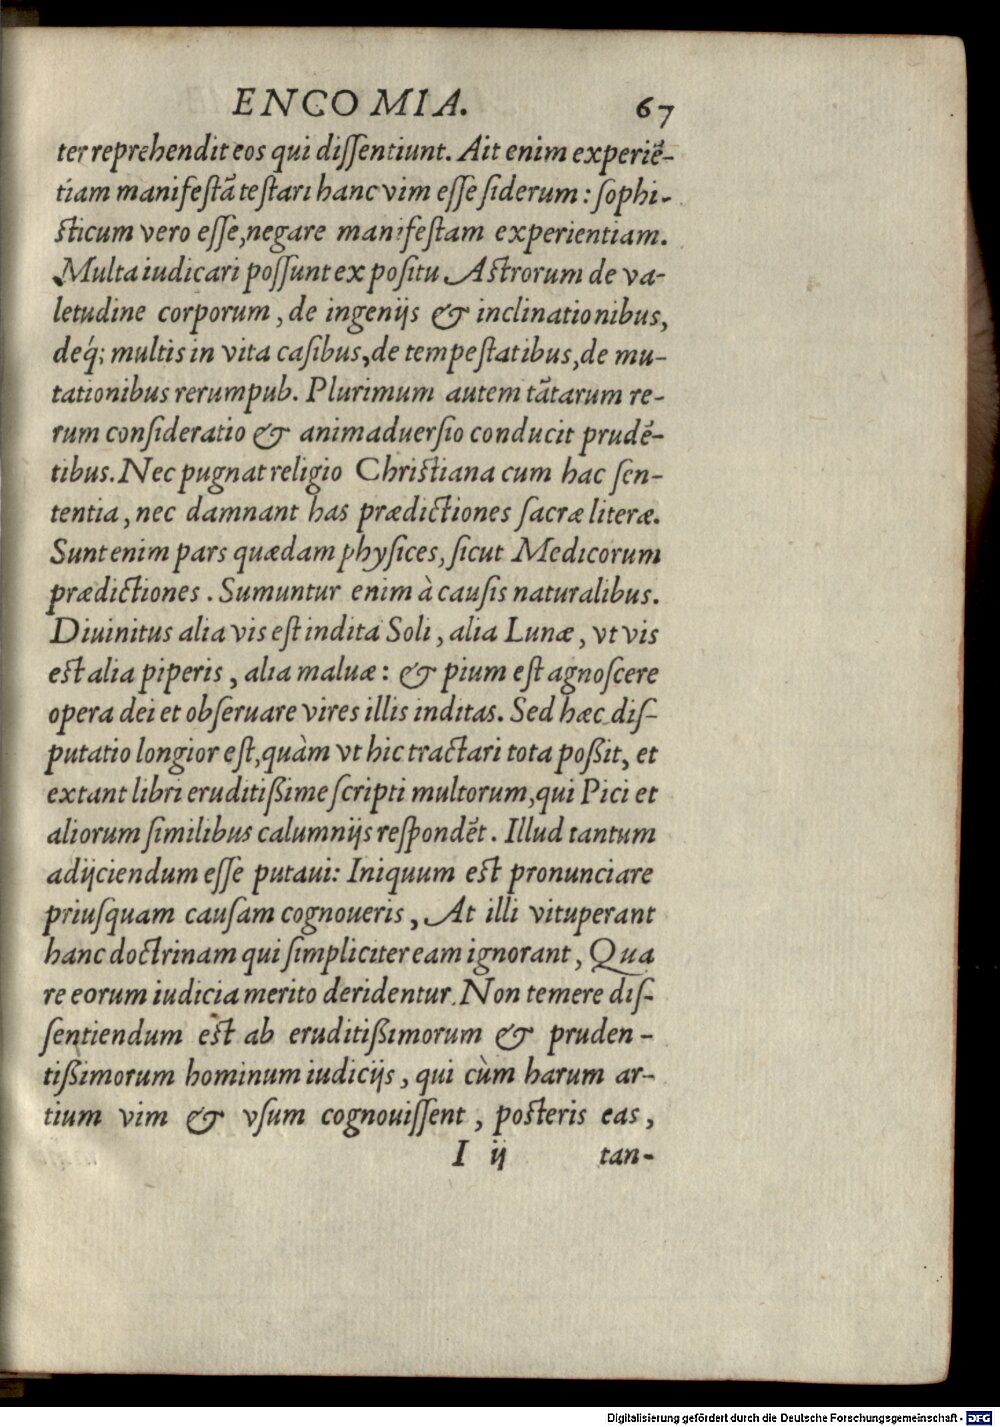 ENCOMIA. 67
ter reprehendit eos qui dissentiunt. Ait enim experiẽ-
tiam manifestã testari hanc vim esse siderum: sophi-
sticum vero esse, negare manifestam experientiam.
Multa iudicari possunt ex positu Astrorum de va-
letudine corporum, de ingenijs & inclinationibus,
deq́; multis in vita casibus, de tempestatibus, de mu-
tationibus rerum pub. Plurimum autem tãtarum re-
rum consideratio & animaduersio conducit prudẽ-
tibus. Nec pugnat religio Christiana cum hac sen-
tentia, nec damnant has prædictiones sacræ literæ.
Sunt enim pars quædam physices, sicut Medicorum
prædictiones. Sumuntur enim à causis naturalibus.
Diuinitus alia vis est indita Soli, alia Lunæ, vt vis
est alia piperis, alia maluæ: & pium est agnoscere
opera dei et obseruare vires illis inditas. Sed hæc dis-
putatio longior est, quàm vt hic tractari tota poßit, et
extant libri eruditißime scripti multorum, qui Pici et
aliorum similibus calumnijs respondẽt. Illud tantum
adijciendum esse putaui: Iniquum est pronunciare
priusquam causam cognoueris, At illi vituperant
hanc doctrinam qui simpliciter eam ignorant, Qua
re eorum iudicia merito deridentur. Non temere dis-
sentiendum est ab eruditißimorum & pruden-
tißimorum hominum iudicijs, qui cùm harum ar-
tium vim & vsum cognouissent, posteris eas,
I ij tan-
Digitalisierung gefördert durch die Deutsche Forschungsgemeinschaft - DFG